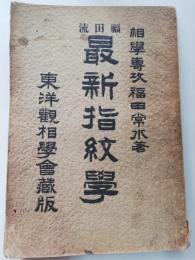 相學專攻福田常水著
流田福
最新指紋學
東洋觀相學會藏版